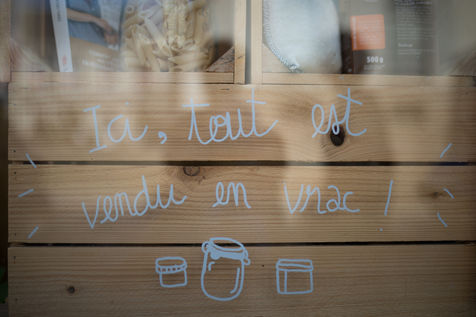 500g
Ici, tout est
vendu en vrac !